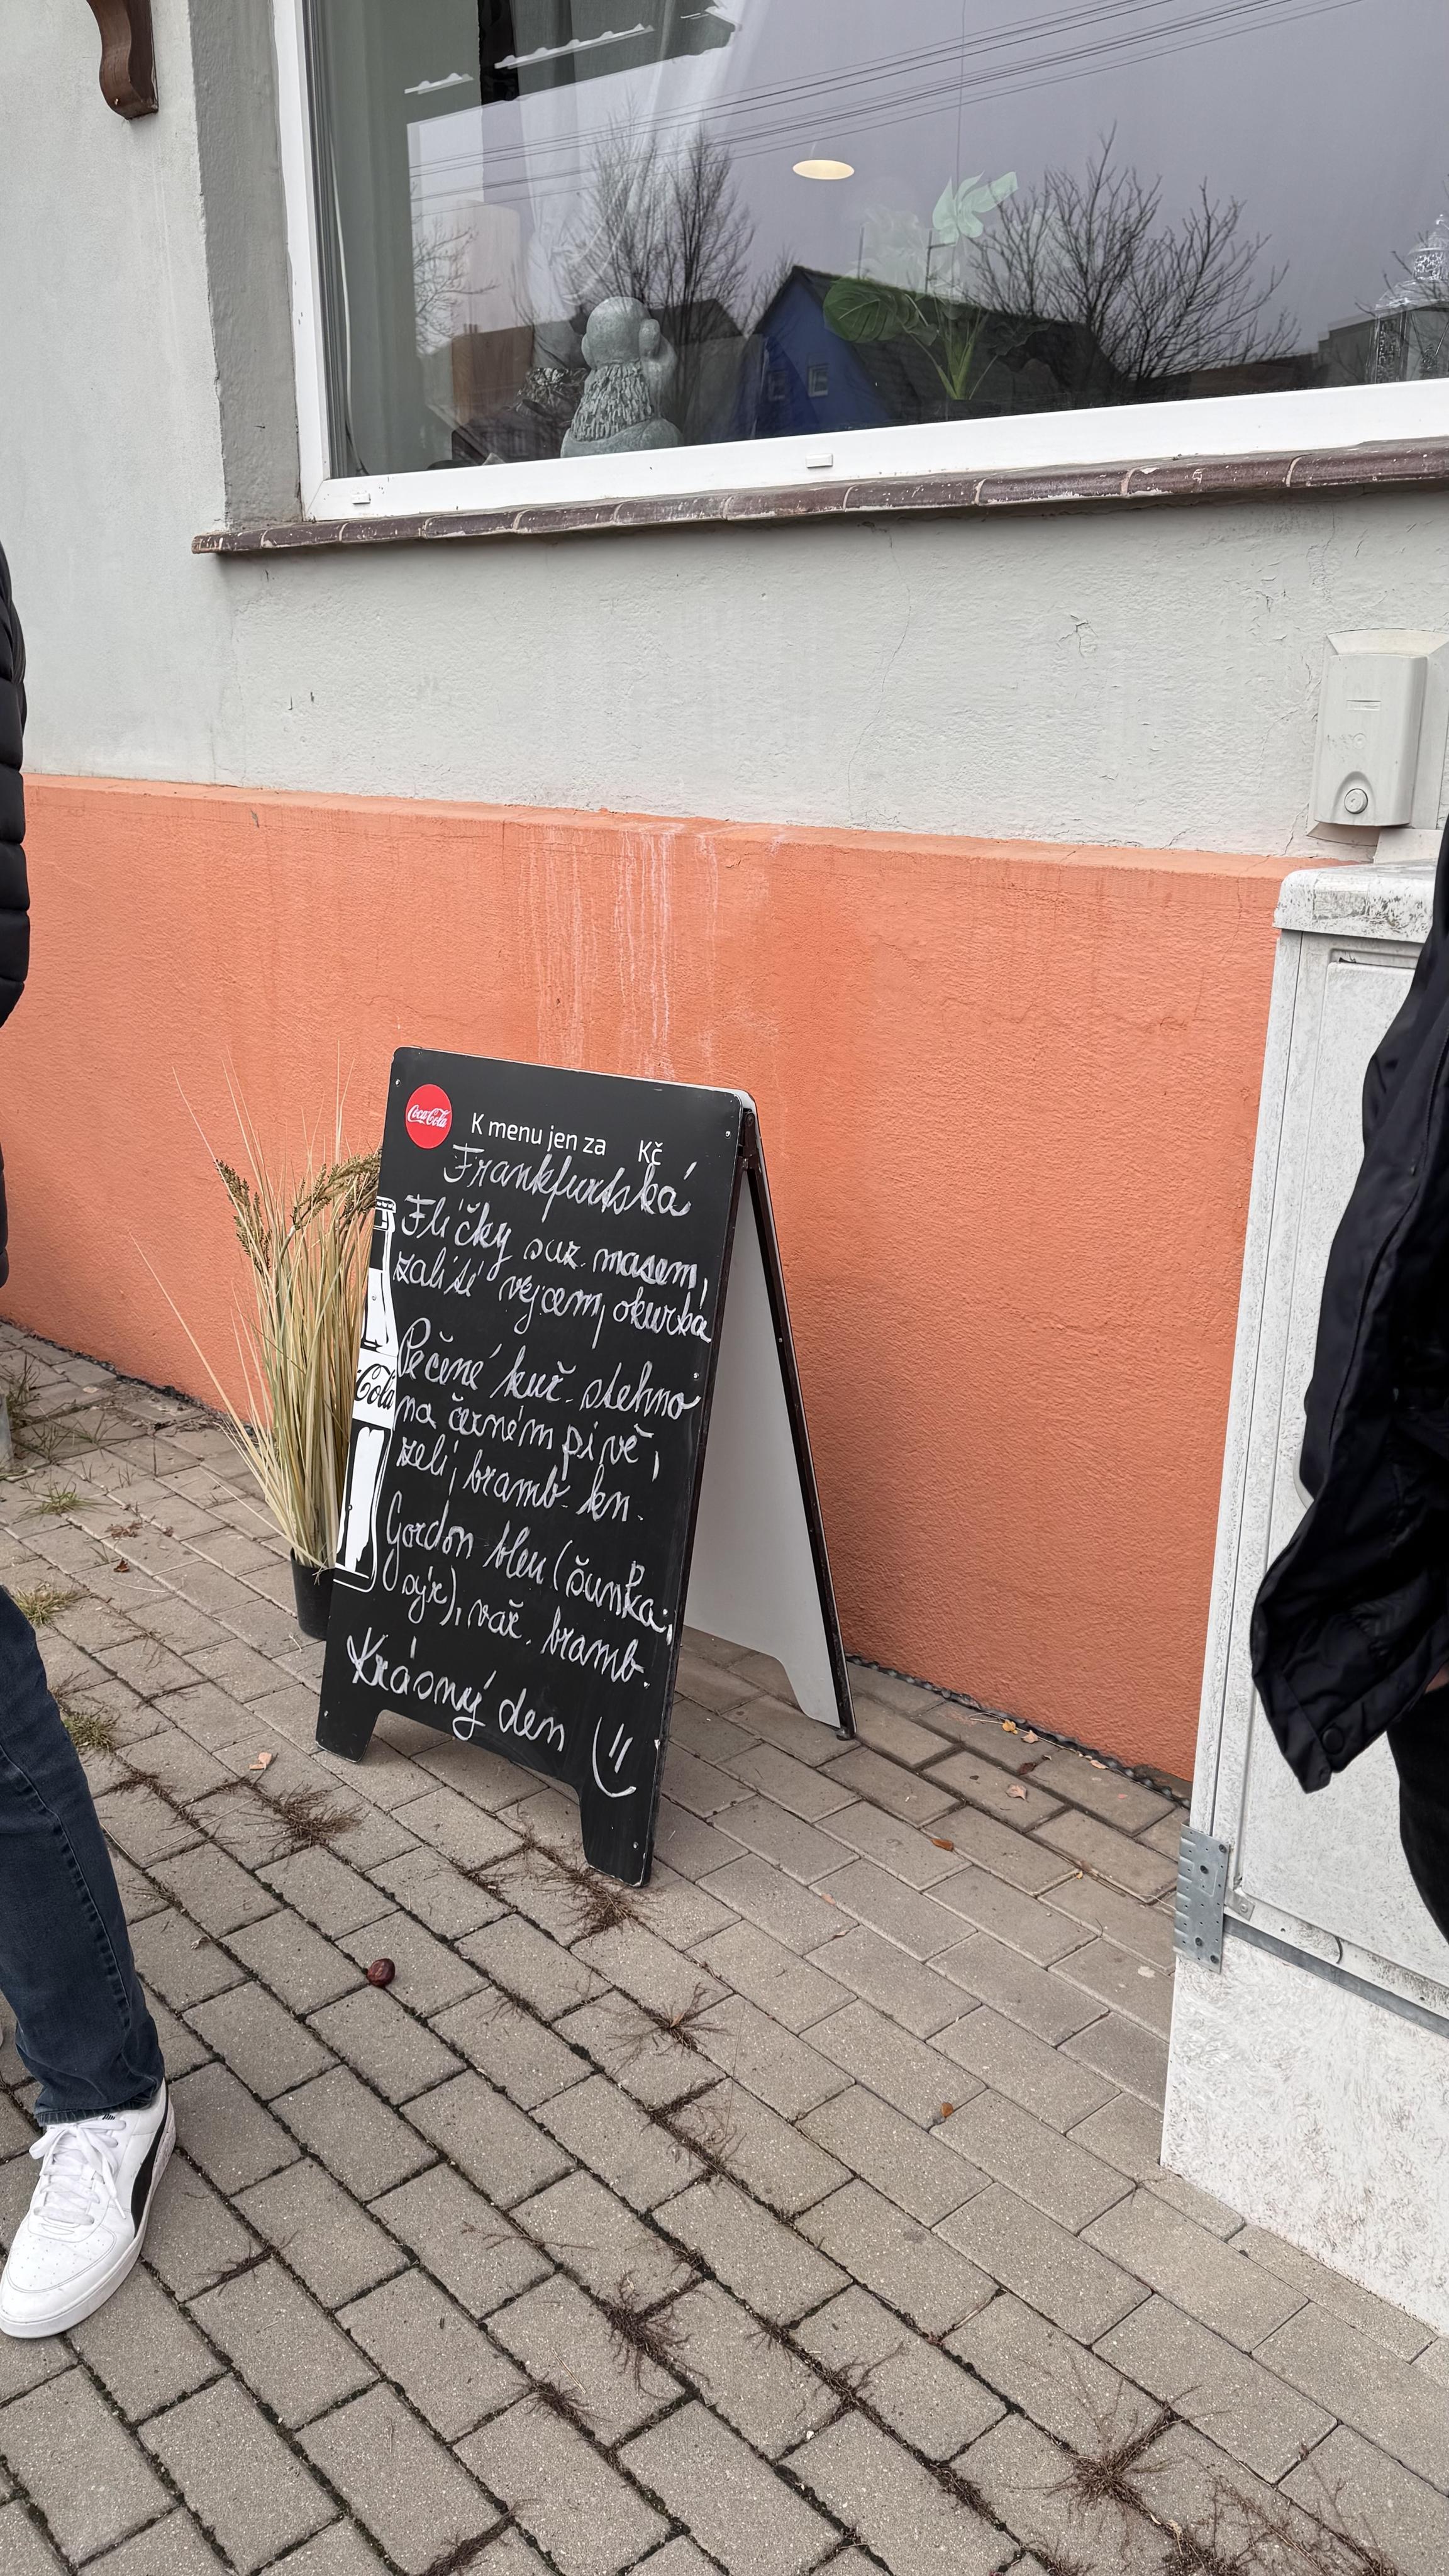 Coca-Cola
K menu jen za Kč
Frankfurtská
Flíčky s uz. masem,
zalité vejcem, okurka
Pečené kuř. stehno
na černém pivě,
zelí, bramb. kn.
Gordon bleu (šunka,
sýr), vař. bramb.
Krásný den
Cola